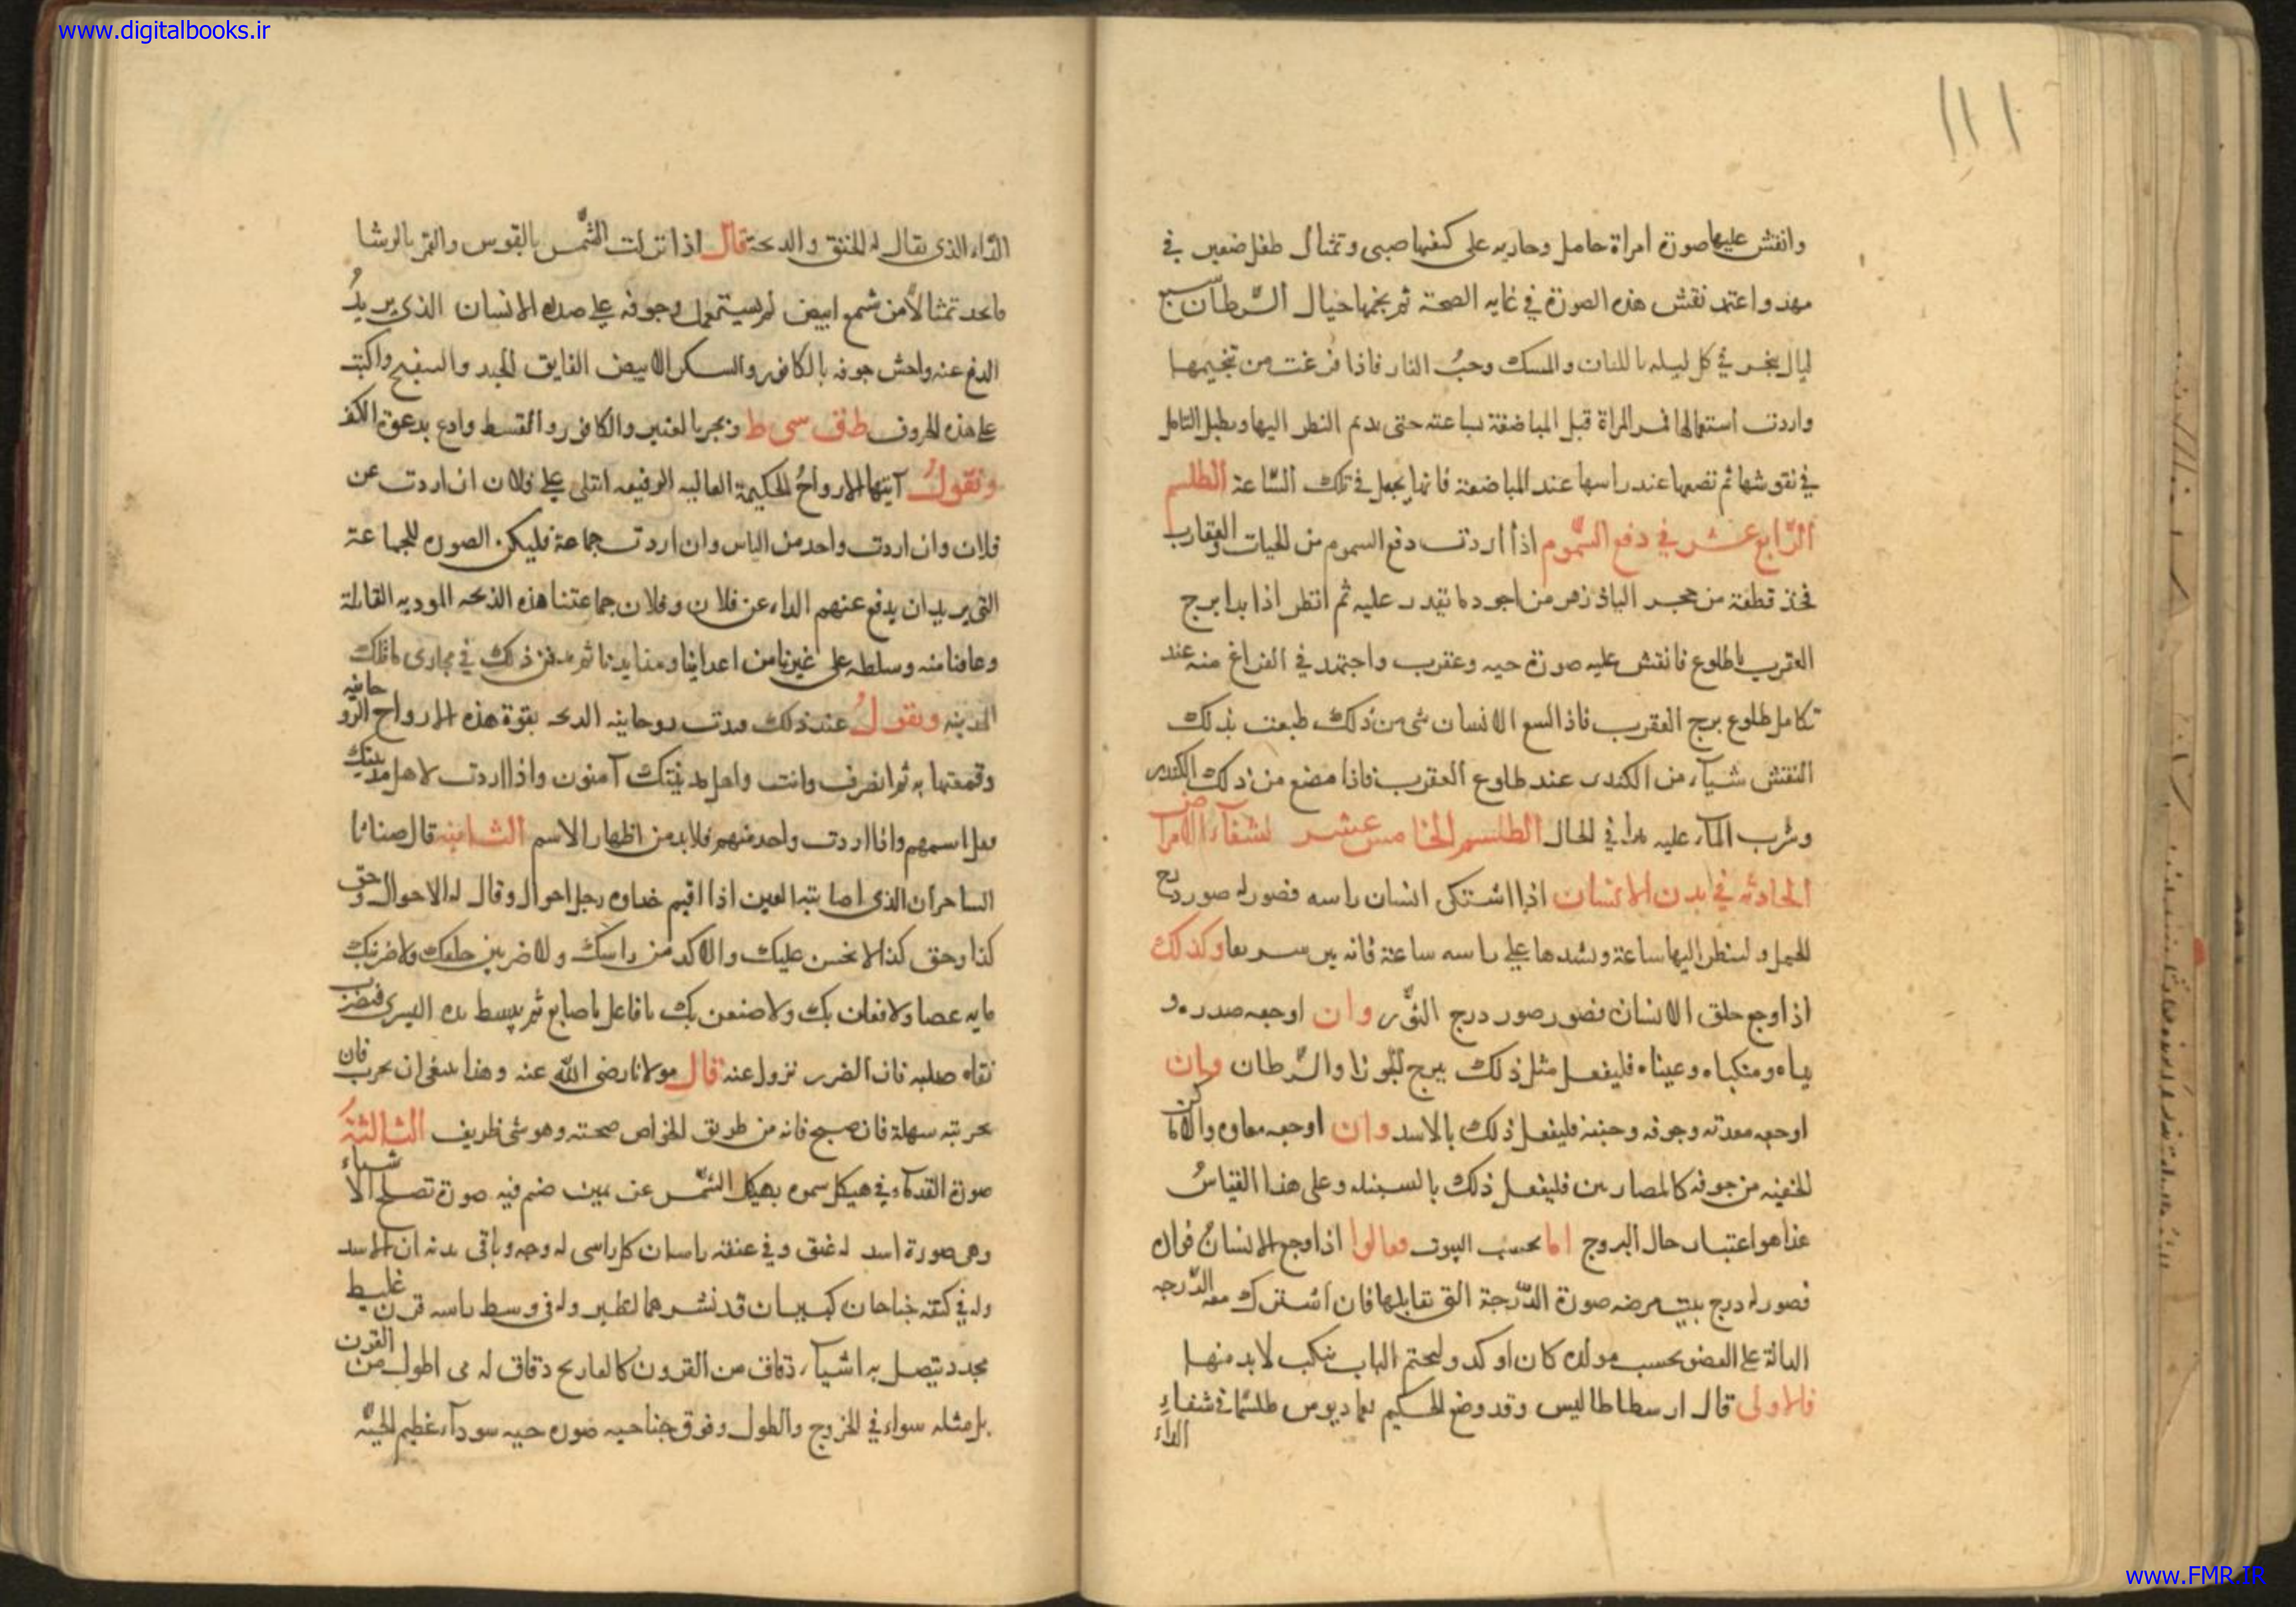 www.digitalbooks.ir
١١١
وانقش عليها صورة امراة حامل وحاديه على كتفها صبى وتمثال طفل صغير في
مهد واعتمد نقش هذه الصورة في غايه الصحة ثم بخمها حيال السرطان سبع
ليال بخر في كل ليله باللبان والمسك وحب الغار فاذا فرغت من تنجيمها
واردت استعمالها فمر المراة قبل المباضعة بساعة حتى يديم النظر اليها ويطيل التامل
في نقوشها ثم تضعها عند راسها عند المباضعة فانها يحبل في تلك الساعة الطلسم
الرابع عشر في دفع السموم اذا اردت دفع السموم من الحيات والعقارب
فخذ قطعة من حجر الباذزهر من اجود ما تقدر عليه ثم انظر اذا بدا برج
العقرب بالطلوع فانقش عليه صورة حيه وعقرب واجتهد في الفراغ منه عند
تكامل طلوع برج العقرب فاذا لسع الانسان شى من ذلك طبعت بذلك
النقش شيآء من الكندر عند طلوع العقرب فاذا مضغ من ذلك الكندر
وشرب المآء عليه برا في الحال الطلسم الخامس عشر لشفآء الامراض
الحادثه في بدن الانسان اذا اشتكى انسان راسه فصور له صور درج
الحمل ولينظر اليها ساعة ويشدها على راسه ساعة فانه يبرا سريعا وكذلك
اذا وجع حلق الانسان فصور صور درج الثور وان اوجعه صدره و
يداه ومنكباه وعيناه فليفعل مثل ذلك ببرج الجوزا والسرطان وان
اوجعه معدته وجوفه وجنبه فليفعل ذلك بالاسد وان اوجعه معاوه والاماكن
الخفيه من جوفه كالمصارين فليفعل ذلك بالسنبله وعلى هذا القياس
هذا هو اعتبار حال البروج اما بحسب البيوت فقالوا اذا وجع الانسان فواده
فصور له درج بيت مرضه صورة الدرجة التى تقابلها فان اشترك معه الدرجه
الدالة على العضو بحسب مولده كان اوكد ولنختم الباب بنكت لا بد منها
فالاولى قال ارسطاطاليس وقد وضع الحكيم طلسما في شفاء
الداء
الدآء الذى يقال له الخنق والذبحة قال اذا نزلت الشمس بالقوس والقمر بالرشا
فاتخذ تمثالا من شمع ابيض لم يستعمل وجوفه على صورة الانسان الذى يريد
الدفع عنه واحش جوفه بالكافور والسكر الابيض الفايق الجيد والبنفسج واكتب
على هذه الحروف ط ف سى ط وبخر بالعنبر والكافور والقسط وادع بدعوة الكف
وتقول ايتها الارواح الحكيمة العاليه الرفيعه انتقلى على فلان ان اردت عن
فلان وان اردت واحد من الناس وان اردت جماعة فليكن الصورة للجماعة
التى يريد ان يدفع عنهم الداء عن فلان وفلان جماعتنا هذه الذبحه الموذيه القاتلة
وعافنا منه وسلطه على غيرنا من اعداينا ثم يدفن ذلك في مجارى مآ تلك
المدينه وتقول عند ذلك روحانيه الذبحه بقوة هذه الارواح الروحانيه
وقمعتها به ثم انصرف وانت واهل مدينتك آمنون واذا اردت لاهل مدينتك
فقل اسمهم واذا اردت واحد منهم فلا بد من اظهار الاسم الثانيه قال
الساحر ان الذى اصابته العين اذا اقيم رجل احول وقال له الاحول وحق
كذا وحق كذا لا عليك من راسك ولاضربن حلقك ولاضربنك
مايه عصا ولافعلن بك ولاصنعن بك ثم يبسط يده اليسرى فيضرب
نقاه صلبه فان الضرر يزول عنه قال مولانا رضى الله عنه وهذا ينبغى ان يجرب فان
تجربته سهلة فان صح فانه من طريق الخواص صحته وهو شى ظريف الثالثة
صورة القدمآء في هيكل سموه بهيكل الشمس عن يمين صنم فيه صورة تصلح الاشياء
وهى صورة اسد له عنق وفي عنقه راسان كل راسى له وجه وباقى بدنه بدن الاسد
وله في كتفه جناحان كبيران قد نشرهما لطير وله في وسط راسه قرن غليظ
محدد يتصل به اشيآء دقاق من القرون دقاق له اطول من القرن
بل مثله سواء في الخروج والطول وفوق جناحيه صورة حيه سودآء عظيم الجثه
www.FMR.IR